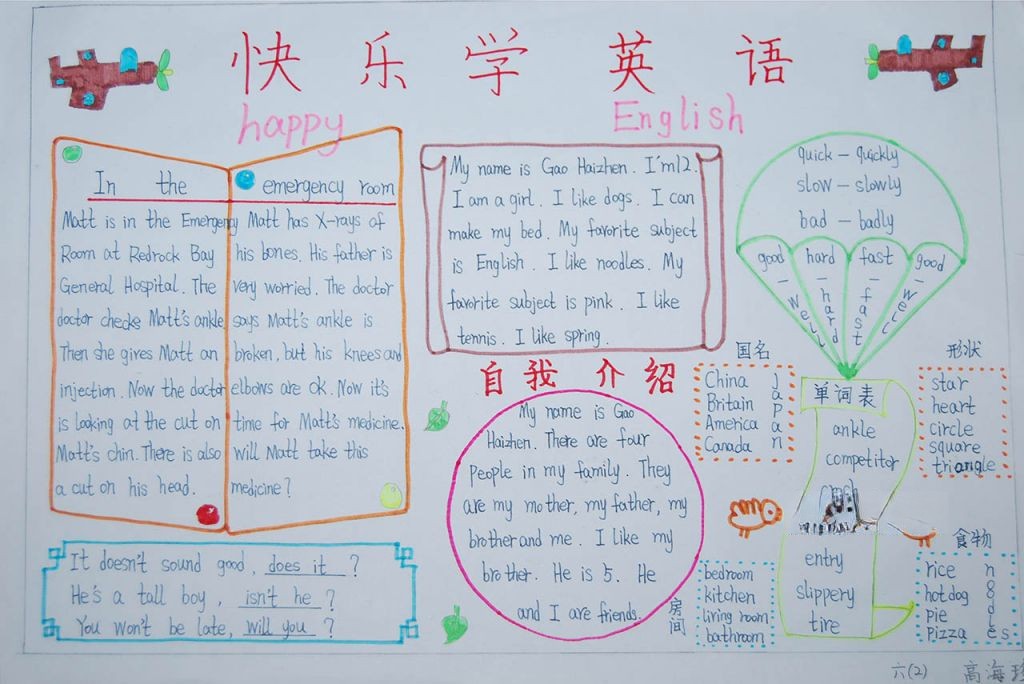 快乐学英语
happy English
In the emergency room
Matt is in the Emergency
Room at Redrock Bay
General Hospital. The
doctor checks Matt's ankle.
Then she gives Matt an
injection. Now the doctor
is looking at the cut on
Matt's chin. There is also
a cut on his head.
Matt has X-rays of
his bones. His father is
very worried. The doctor
says Matt's ankle is
broken, but his knees and
elbows are ok. Now it's
time for Matt's medicine.
Will Matt take this
medicine?
It doesn't sound good, does it ?
He's a tall boy, isn't he ?
You won't be late, will you ?
My name is Gao Haizhen. I'm 12.
I am a girl. I like dogs. I can
make my bed. My favorite subject
is English. I like noodles. My
favorite subject is pink. I like
tennis. I like spring.
自我介绍
My name is Gao
Haizhen. There are four
People in my family. They
are my mother, my father, my
brother and me. I like my
brother. He is 5. He
and I are friends.
quick - quickly
slow - slowly
bad - badly
good - well
hard - hard
fast - fast
good - well
国名
China
Britain
America
Canada
Japan
形状
star
heart
circle
square
triangle
单词表
ankle
competitor
entry
slippery
tire
房间
bedroom
kitchen
living room
bathroom
食物
rice
hot dog
pie
pizza
六(2) 高海珍